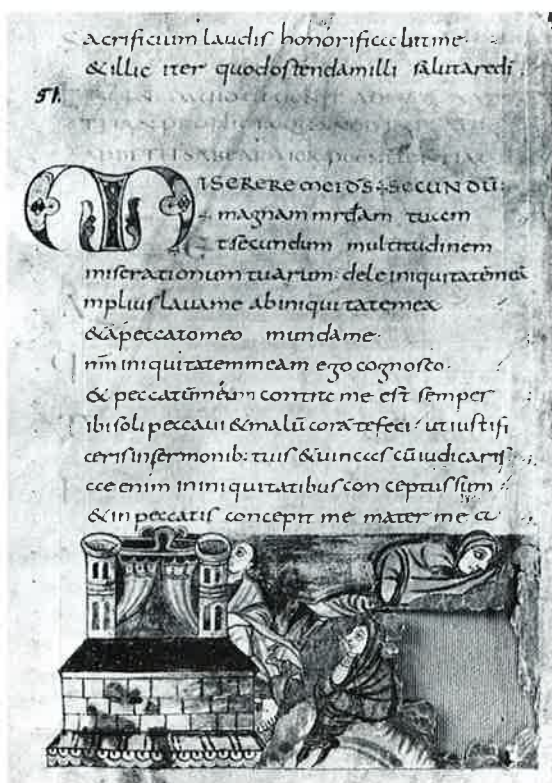 acrificium laudis honorificabit me
& illic iter quodostendamilli salutaredi
51.
MISERERE MEI DS SECUNDŪ
magnam mrdam tuam
Et secundum multitudinem
miserationum tuarum dele iniquitatēmeā
mplius lavame abiniquitatemea
& apeccatomeo mundame
nm iniquitatemmeam ego cognosco
& peccatūmeum contra me est semper
ibi soli peccavi & malū corā tefeci ut iustifi
ceris insermonib: tuis & vincas cū iudicaris
cce enim ininiquitatibus conceptus sum
& in peccatis concepit me mater mea